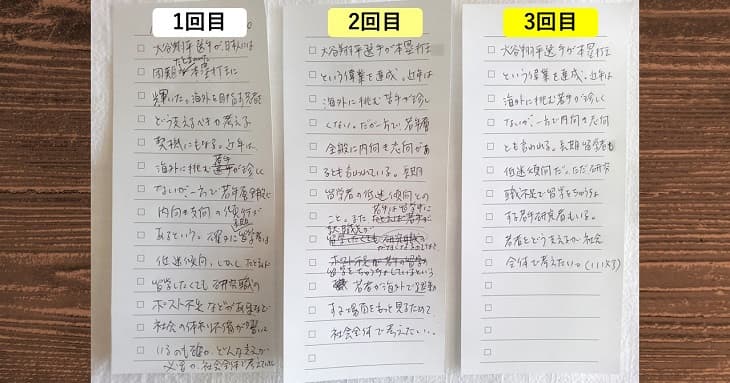 1回目
大谷翔平選手が、日本人には
本塁打王に
輝いた。海外を目指す若者
どう支えるべきか考える
契機にもなる。近年は、
海外に挑む若手が珍しく
ないが、一方で若年層全般に
内向き志向の傾向が
あるという。確かに留学者は
低迷傾向。しかし、たとえば
留学したくても研究職の
ポスト不足などが
社会の体制不備が
いるのも確か。
社会全体で考えたい
2回目
大谷翔平選手が本塁打王
という偉業を達成。近年は
海外に挑む若手が珍しく
ない。だが一方で、若年層
全般に内向き志向があ
るとも言われている。長期
留学者の低迷傾向との
こと。また
留学したくても研究職の
ポスト不足
留学をちゅうちょしているという
若者が海外で活動
する場面をもっと見るためにも
社会全体で考えたい。
3回目
大谷翔平選手が本塁打王
という偉業を達成。近年は
海外に挑む若手が珍しく
ないが、一方で内向き志向
とも言われる。長期留学者も
低迷傾向だ。ただ研究
職不足で留学をちゅうちょ
する若手研究者もいる。
若者をどう支えるか、社会
全体で考えたい。(111文字)